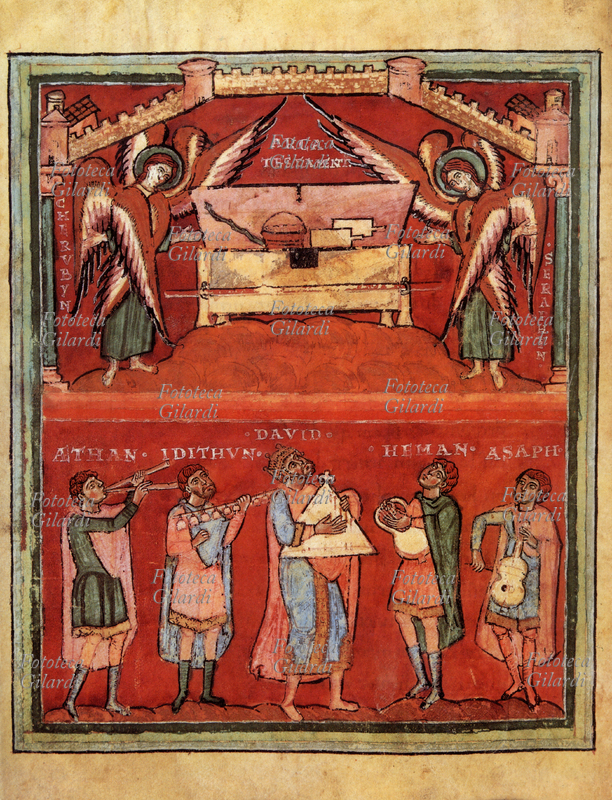 ARCA
TESTAMENT
CHERVBYN
SERAPHYN
·DAVID·
ÆTHAN· IDITHVN· ·HEMAN· ASAPH·
Fototeca
Gilardi
Fototeca
Gilardi
Fototeca
Gilardi
Fototeca
Gilardi
Fototeca
Gilardi
Fototeca
Gilardi
Fototeca
Gilardi
Fototeca
Gilardi
Fototeca
Gilardi
Fototeca
Gilardi
Fototeca
Gilardi
Fototeca
Gilardi
Fototeca
Gilardi
Fototeca
Gilardi
Fototeca
Gilardi
Fototeca
Gilardi
Fototeca
Gilardi